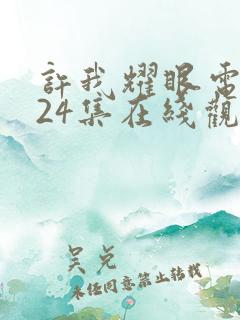 許我耀眼電
24集在綫觀
吴兑
未经同意禁止转载